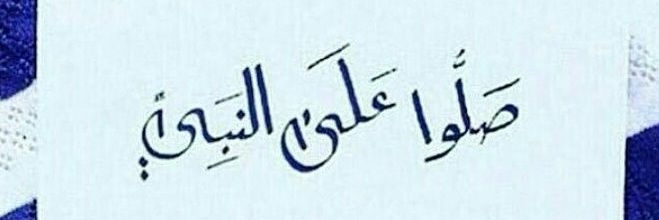 صَلُّوا عَلَىٰ النَبِيِّ